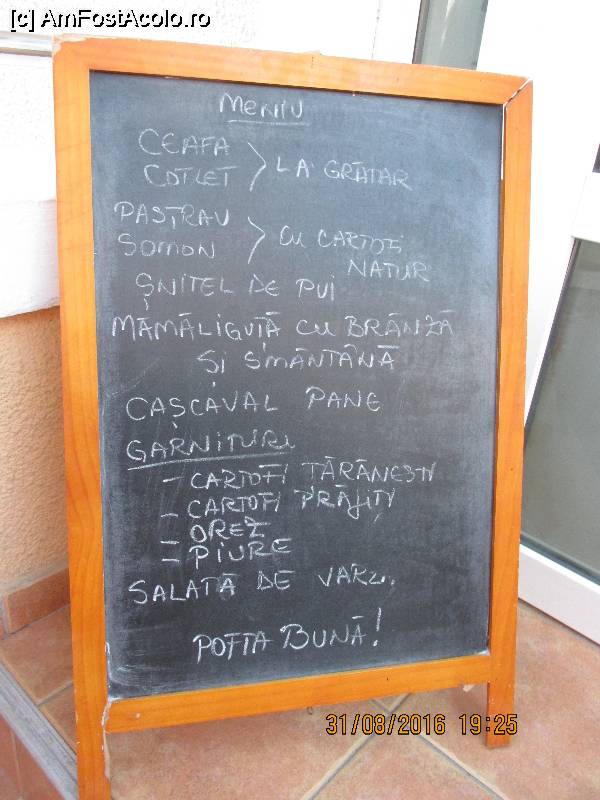 [c] AmFostAcolo.ro
MENIU
CEAFA
COTLET
LA GRĂTAR
PĂSTRĂV
SOMON
CU CARTOFI
NATUR
ȘNITEL DE PUI
MĂMĂLIGUȚĂ CU BRÂNZĂ
ȘI SMÂNTÂNĂ
CAȘCAVAL PANE
GARNITURI
- CARTOFI ȚĂRĂNEȘTI
- CARTOFI PRĂJIȚI
- OREZ
- PIURE
SALATĂ DE VARZĂ
POFTĂ BUNĂ!
31/08/2016 19:25